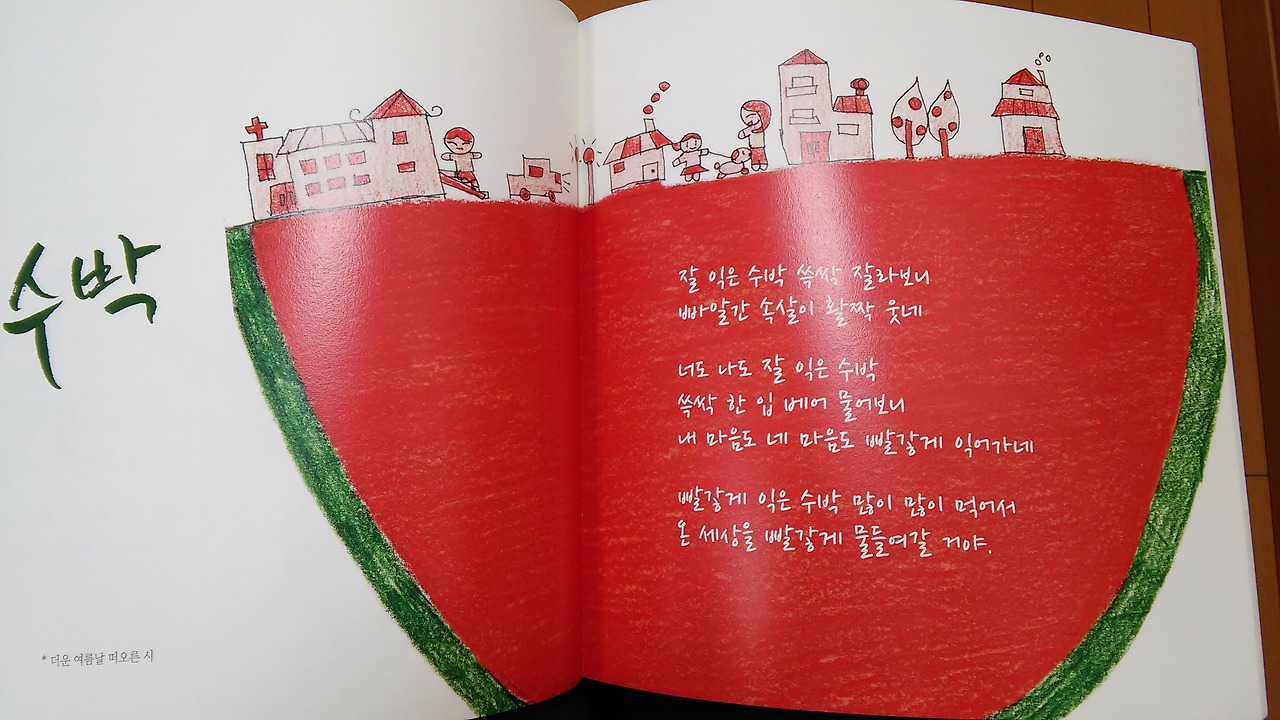 수박
잘 익은 수박 쓱싹 잘라보니
빠알간 속살이 활짝 웃네
너도 나도 잘 익은 수박
쓱싹 한 입 베어 물어보니
내 마음도 네 마음도 빨갛게 익어가네
빨갛게 익은 수박 많이 많이 먹어서
온 세상을 빨갛게 물들여갈 거야.
* 더운 여름날 떠오른 시